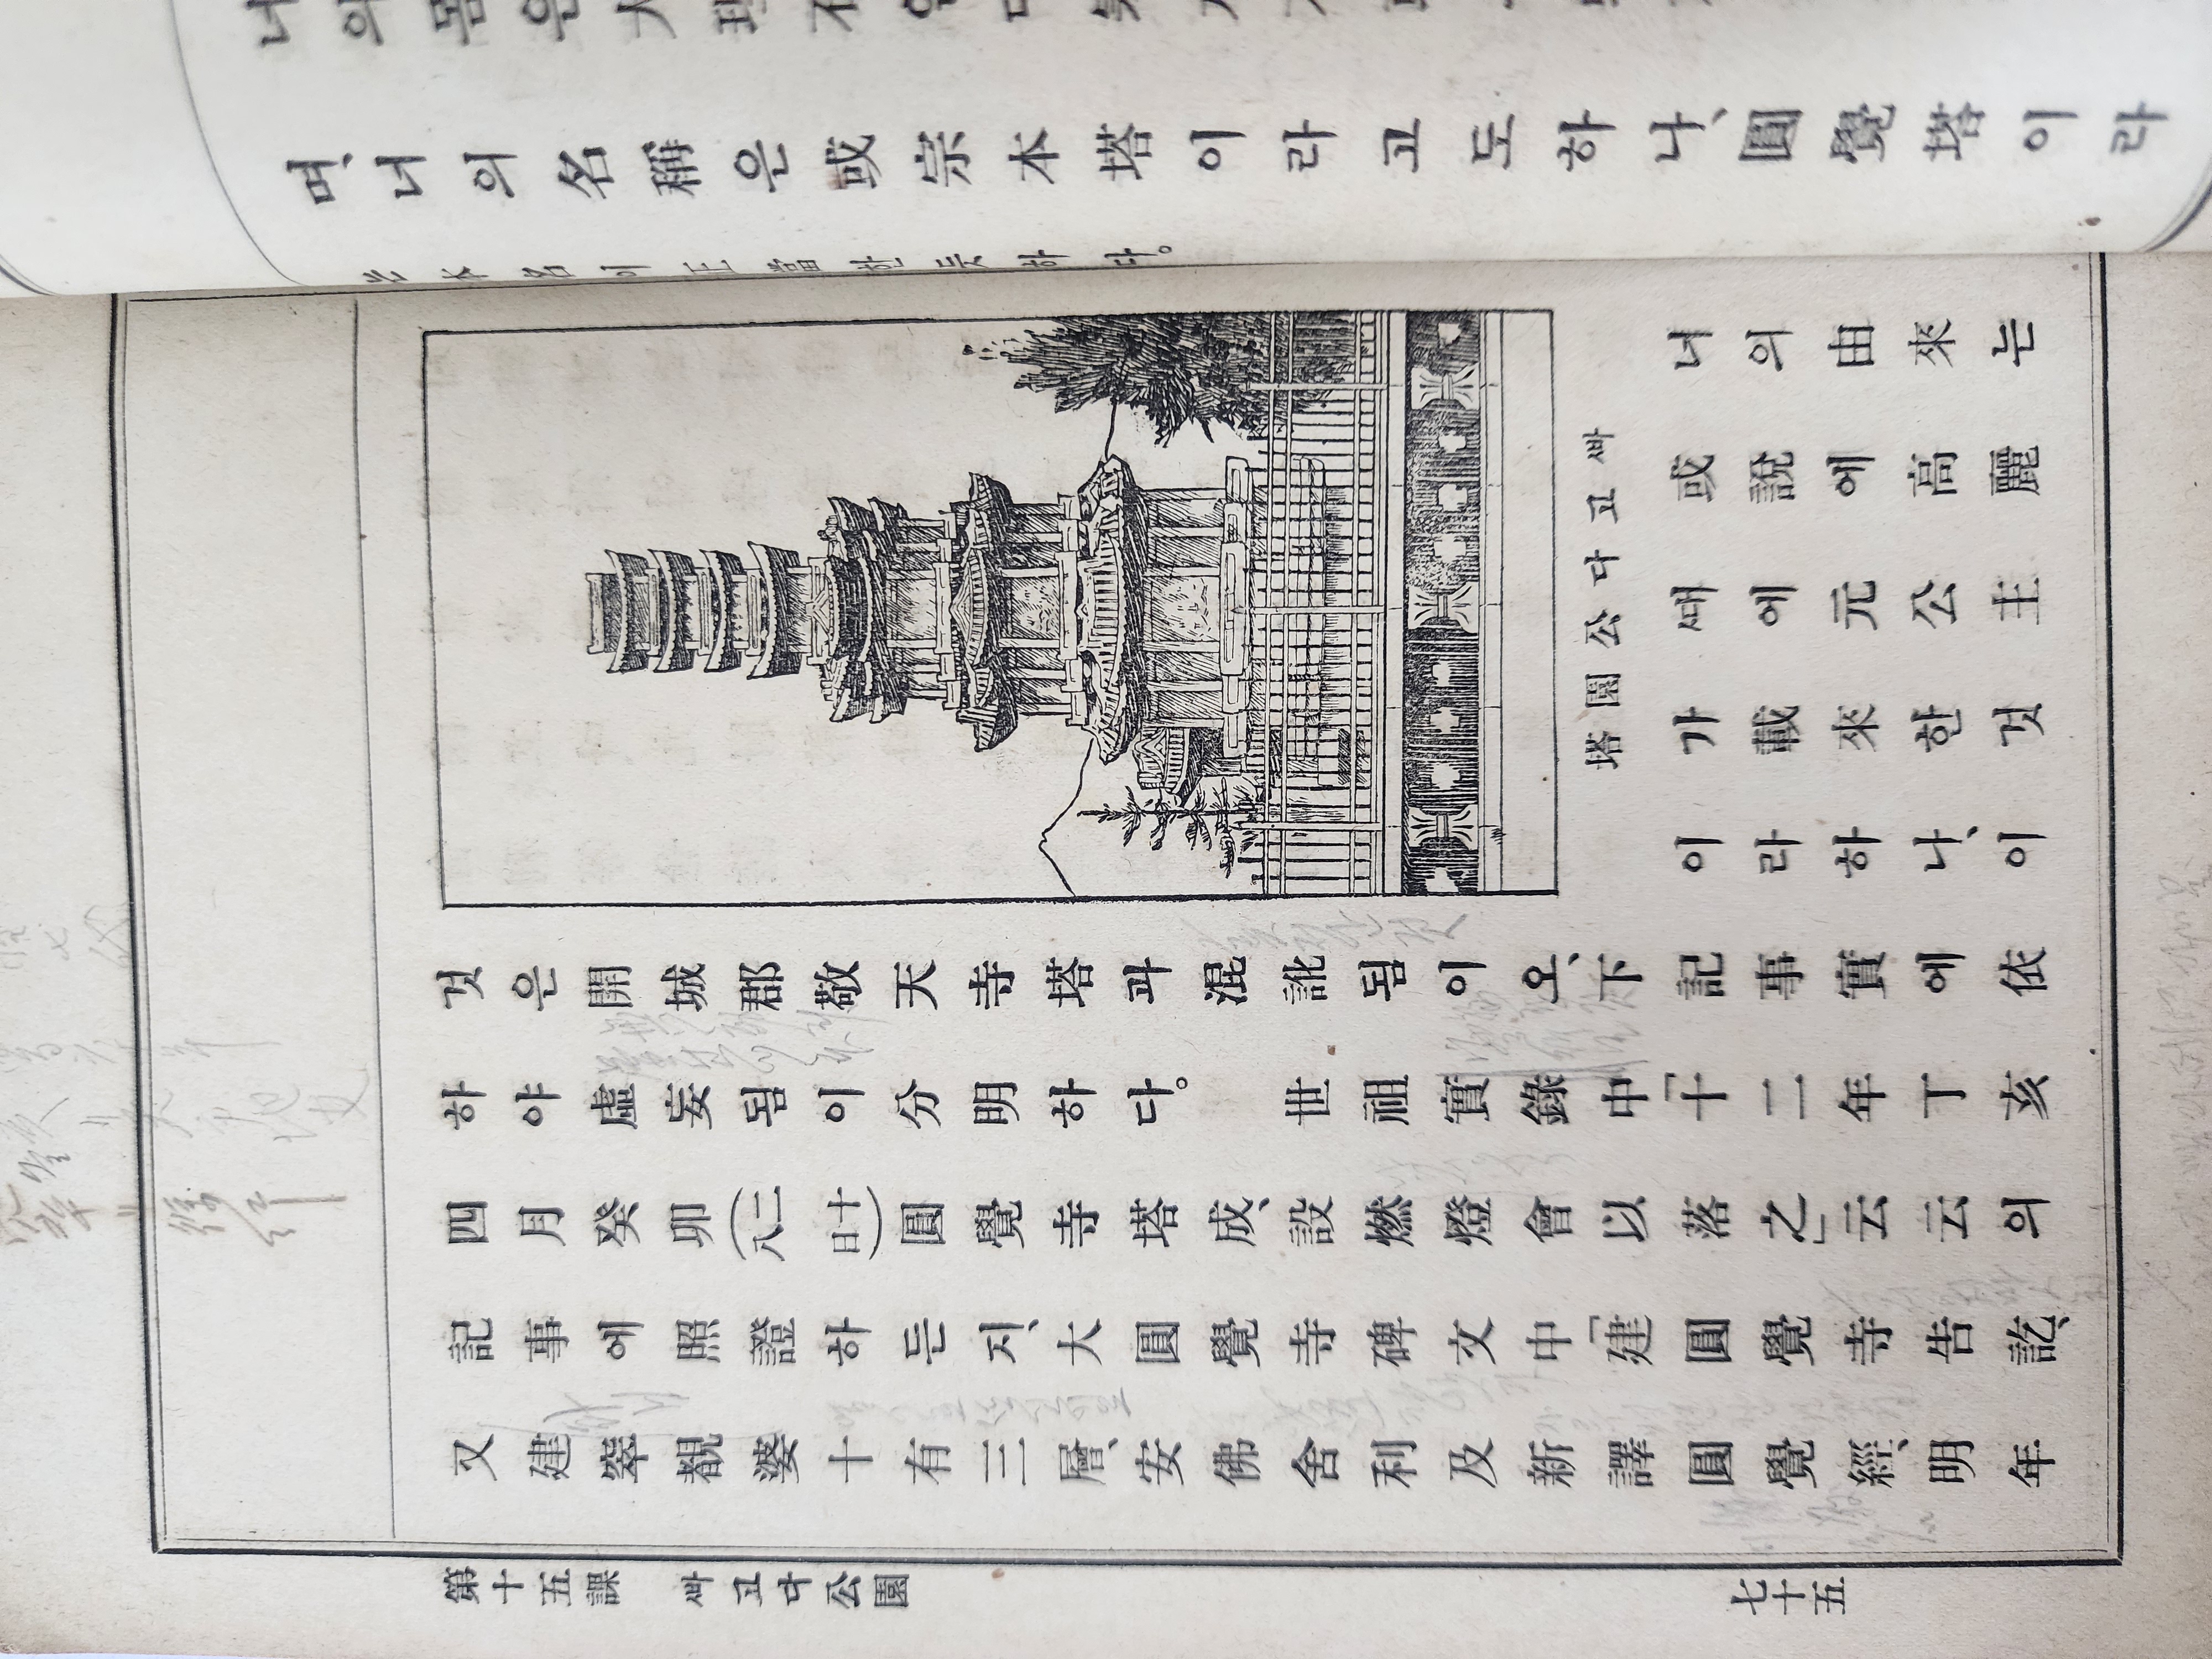 며、너의名稱은或宗本塔이라고도하나、圓覺塔이라
는本名이正當한듯하다。
ᄲᅡ고다公園塔
너의由來는
或說에高麗
ᄯᅢ에元公主
가載來한것
이라하나、이
것은開城郡敬天寺塔과混訛됨이오、下記事實에依
하야虛妄됨이分明하다。 世祖實錄中「十二年丁亥
四月癸卯(二十八日)圓覺寺塔成、設燃燈會以落之」云云의
記事에照證하든지、大圓覺寺碑文中「建圓覺寺告訖、
又建窣覩婆十有三層、安佛舍利及新譯圓覺經、明年
第十五課 ᄲᅡ고다公園 七十五